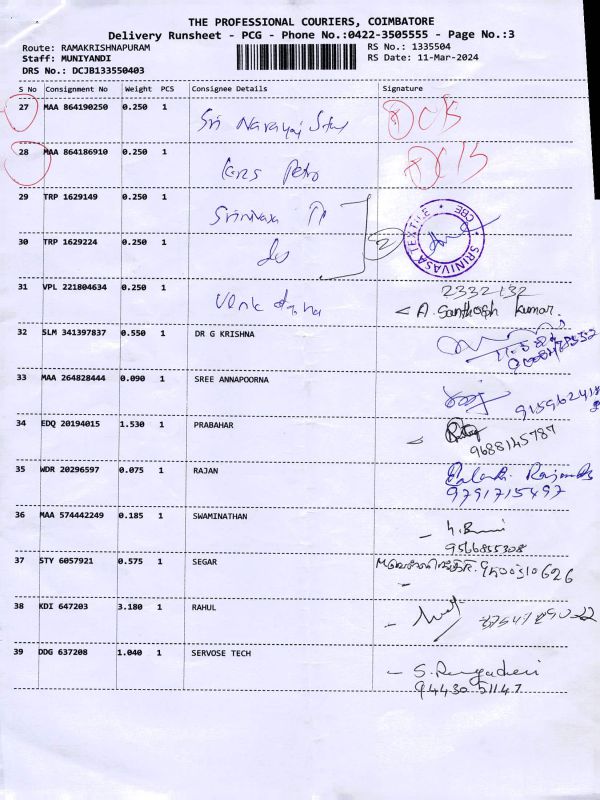 THE PROFESSIONAL COURIERS, COIMBATORE
Delivery Runsheet - PCG - Phone No.:0422-3505555 - Page No.:3
Route: RAMAKRISHNAPURAM RS No.: 1335504
Staff: MUNIYANDI RS Date: 11-Mar-2024
DRS No.: DCJB133550403
S No Consignment No Weight PCS Consignee Details Signature
27 MAA 864190250 0.250 1 Sri
28 MAA 864186910 0.250 1 Petro
29 TRP 1629149 0.250 1 Srinivasa
30 TRP 1629224 0.250 1 2 SRINIVASA TEXTILE CBE
31 VPL 221804634 0.250 1 2332132
A. Santhosh Kumar.
32 SLM 341397837 0.550 1 DR G KRISHNA
33 MAA 264828444 0.090 1 SREE ANNAPOORNA
34 EDQ 20194015 1.530 1 PRABAHAR 9688145787
35 WDR 20296597 0.075 1 RAJAN
9791715497
36 MAA 574442249 0.185 1 SWAMINATHAN
9566855308
37 STY 6057921 0.575 1 SEGAR
38 KDI 647203 3.180 1 RAHUL
39 DDG 637208 1.040 1 SERVOSE TECH
94430 51147